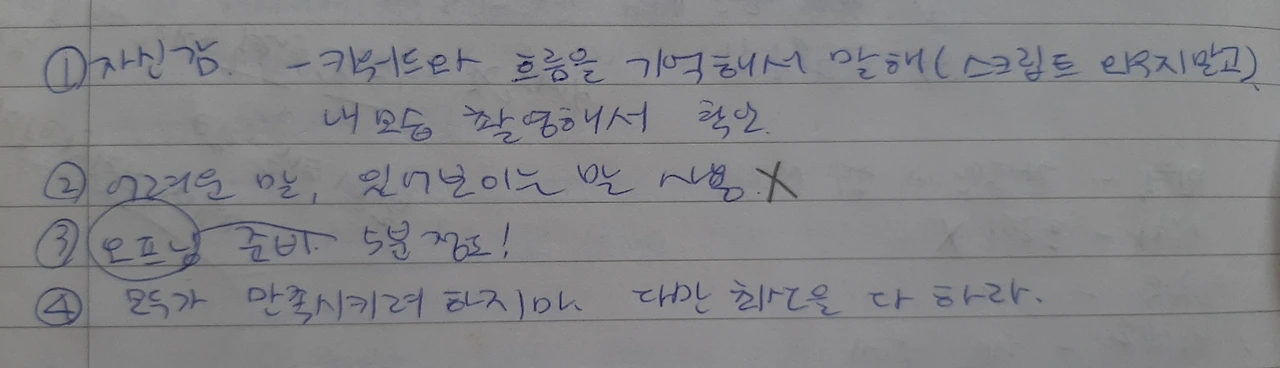 ① 자신감. - 키워드와 흐름을 기억해서 말해 (스크립트 외우지말고)
내 모습 촬영해서 확인.
② 어려운 말, 있어보이는 말 사용. X
③ 오프닝 준비. 5분 정도!
④ 모두가 만족시키려 하지마. 다만 최선을 다 하라.